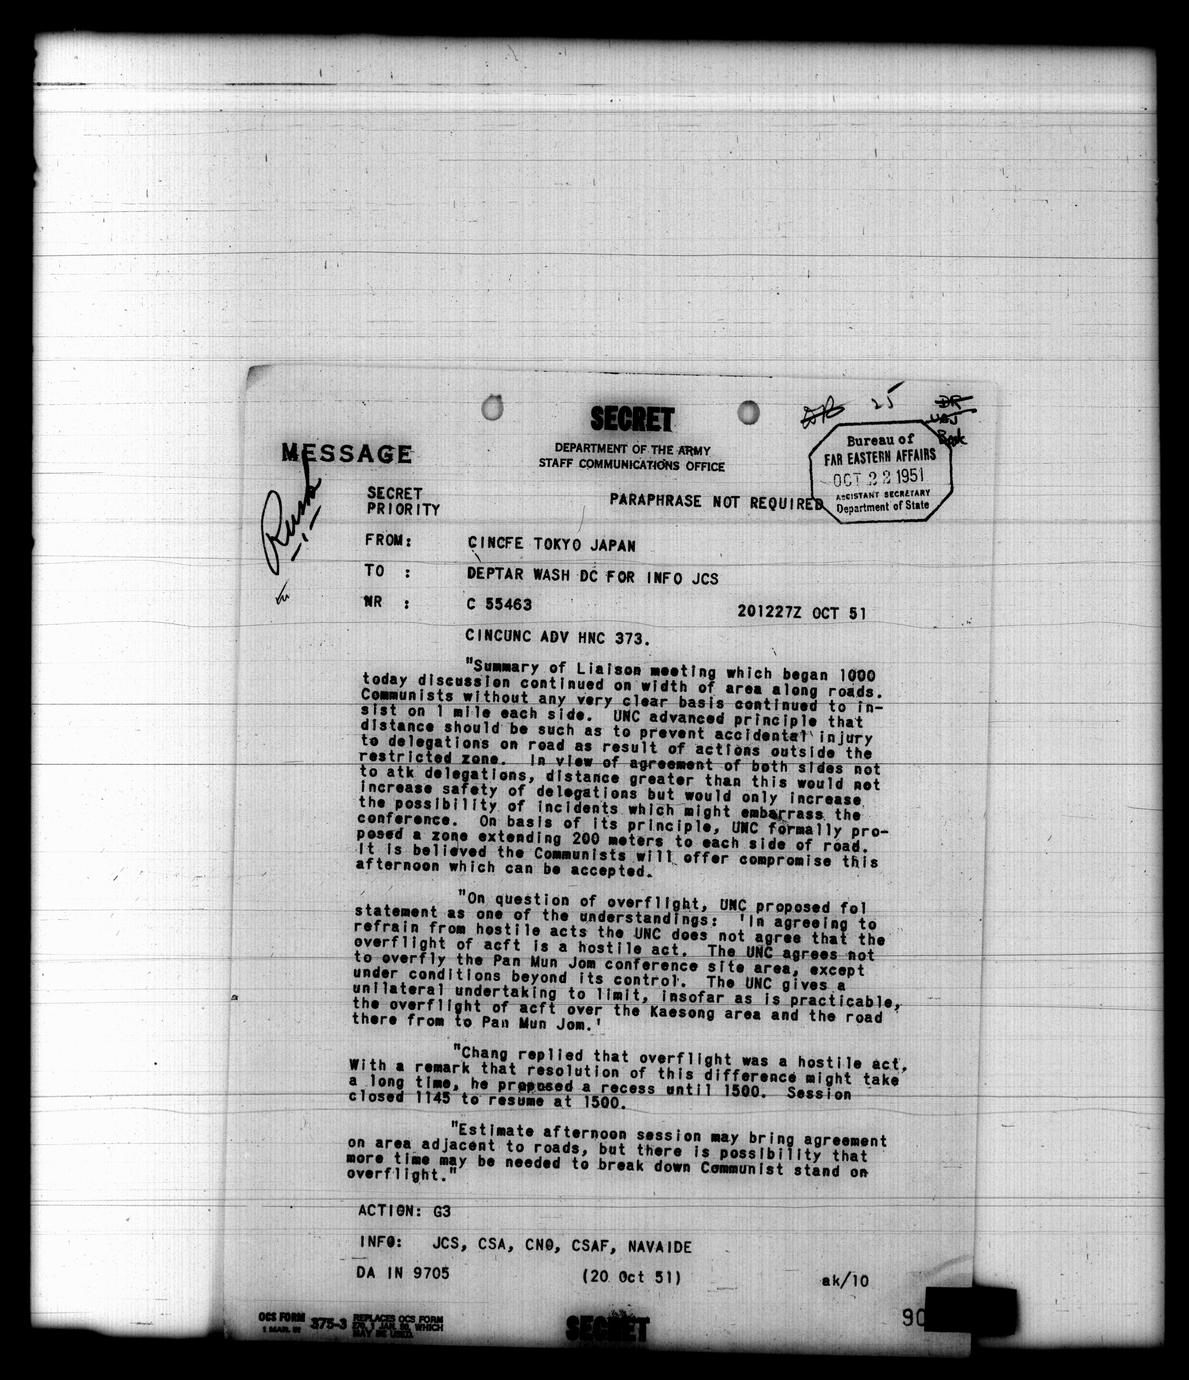 25
DR
SECRET
MESSAGE
DEPARTMENT OF THE ARMY
STAFF COMMUNICATIONS OFFICE
Bureau of
FAR EASTERN AFFAIRS
OCT 22 1951
ASSISTANT SECRETARY
Department of State
SECRET
PRIORITY
PARAPHRASE NOT REQUIRED
FROM: CINCFE TOKYO JAPAN
TO : DEPTAR WASH DC FOR INFO JCS
NR : C 55463 201227Z OCT 51
CINCUNC ADV HNC 373.
"Summary of Liaison meeting which began 1000
today discussion continued on width of area along roads.
Communists without any very clear basis continued to in-
sist on 1 mile each side. UNC advanced principle that
distance should be such as to prevent accidental injury
to delegations on road as result of actions outside the
restricted zone. In view of agreement of both sides not
to atk delegations, distance greater than this would not
increase safety of delegations but would only increase
the possibility of incidents which might embarrass the
conference. On basis of its principle, UNC formally pro-
posed a zone extending 200 meters to each side of road.
It is believed the Communists will offer compromise this
afternoon which can be accepted.
"On question of overflight, UNC proposed fol
statement as one of the understandings: 'In agreeing to
refrain from hostile acts the UNC does not agree that the
overflight of acft is a hostile act. The UNC agrees not
to overfly the Pan Mun Jom conference site area, except
under conditions beyond its control. The UNC gives a
unilateral undertaking to limit, insofar as is practicable,
the overflight of acft over the Kaesong area and the road
there from to Pan Mun Jom.'
"Chang replied that overflight was a hostile act.
With a remark that resolution of this difference might take
a long time, he proposed a recess until 1500. Session
closed 1145 to resume at 1500.
"Estimate afternoon session may bring agreement
on area adjacent to roads, but there is possibility that
more time may be needed to break down Communist stand on
overflight."
ACTION: G3
INFO: JCS, CSA, CNO, CSAF, NAVAIDE
DA IN 9705 (20 Oct 51) ak/10
OCS FORM 375-3 REPLACES OCS FORM
1 MAR. 51 WHICH
MAY BE USED.
SECRET
90